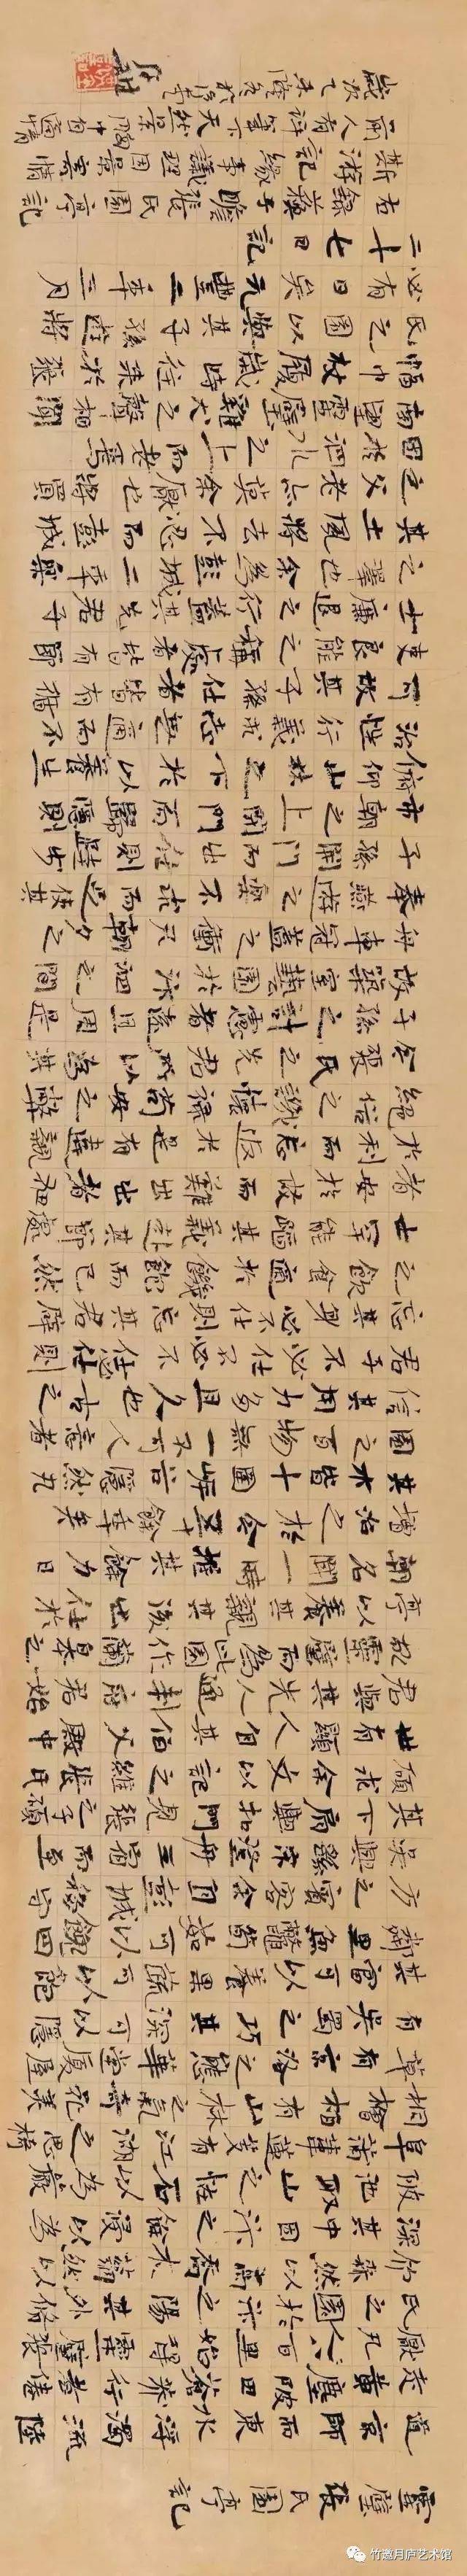 靈壁張氏園亭記
道京師而東水浮濁流陸
走黃塵陂田蒼莽行者倦
厭凡八百里始得靈壁張
氏之園於汴之陽其外修
竹森然以高喬木蓊然以
深其中因汴之餘浸以為
陂池取山之怪石以為巖
阜蒲葦蓮芡有江湖之思椅
桐檜柏有山林之氣奇花美
草有京洛之態華堂廈屋
有吳蜀之巧其深可以隱
其富可以養果蔬可以飽
鄰里魚鱉筍茹可以饋四
方之賓客余自彭城移守
吳興由宋登舟三日而至
其下肩輿叩門見張氏之子
碩碩求余文以記之維張氏
世有顯人自其伯父殿中
君與其先人通判府君始
家靈壁而為此園作蘭皋之
亭以養其親其後出仕於
朝名聞一時推其餘力日
增治之於今五十餘年矣
其木皆十圍岸谷隱然凡
園之百物無一不可人意者
信其用力之多且久也古之
君子不必仕不必不仕必仕則
忘其身必不仕則忘其君譬
之飲食適於饑飽而已然
士罕能蹈其義赴其節處
者安於故而難出出者狃
於利而忘返於是有違親
絕俗之譏懷祿苟安之弊
今張氏之先君所以為其
子孫之計慮者遠且周是
故築室藝園於汴泗之間
舟車冠蓋之衝凡朝夕之
奉燕游之樂不求而足使其
子孫開門而出仕則跬步
市朝之上閉門而歸隱則
俯仰山林之下於以養生
治性行義求志無適而不
可故其子孫仕者皆有循
吏良能之稱處者皆有節
士廉退之行蓋其先君子
之澤也余為彭城二年樂
其土風將去不忍而彭城
之父老亦莫余厭也將買
田於泗水之上而老焉
南望靈壁雞犬之聲相聞
幅巾杖屨歲時往來於張
氏之園以與其子孫遊將
必有日矣元豐二年三月
二十七日記
右蘇子瞻張氏園亭記
斯游錄記緣事議理因景寓情
前人有評筆下天然景胸中自適情
歲次乙未
竹邀月庐艺术馆